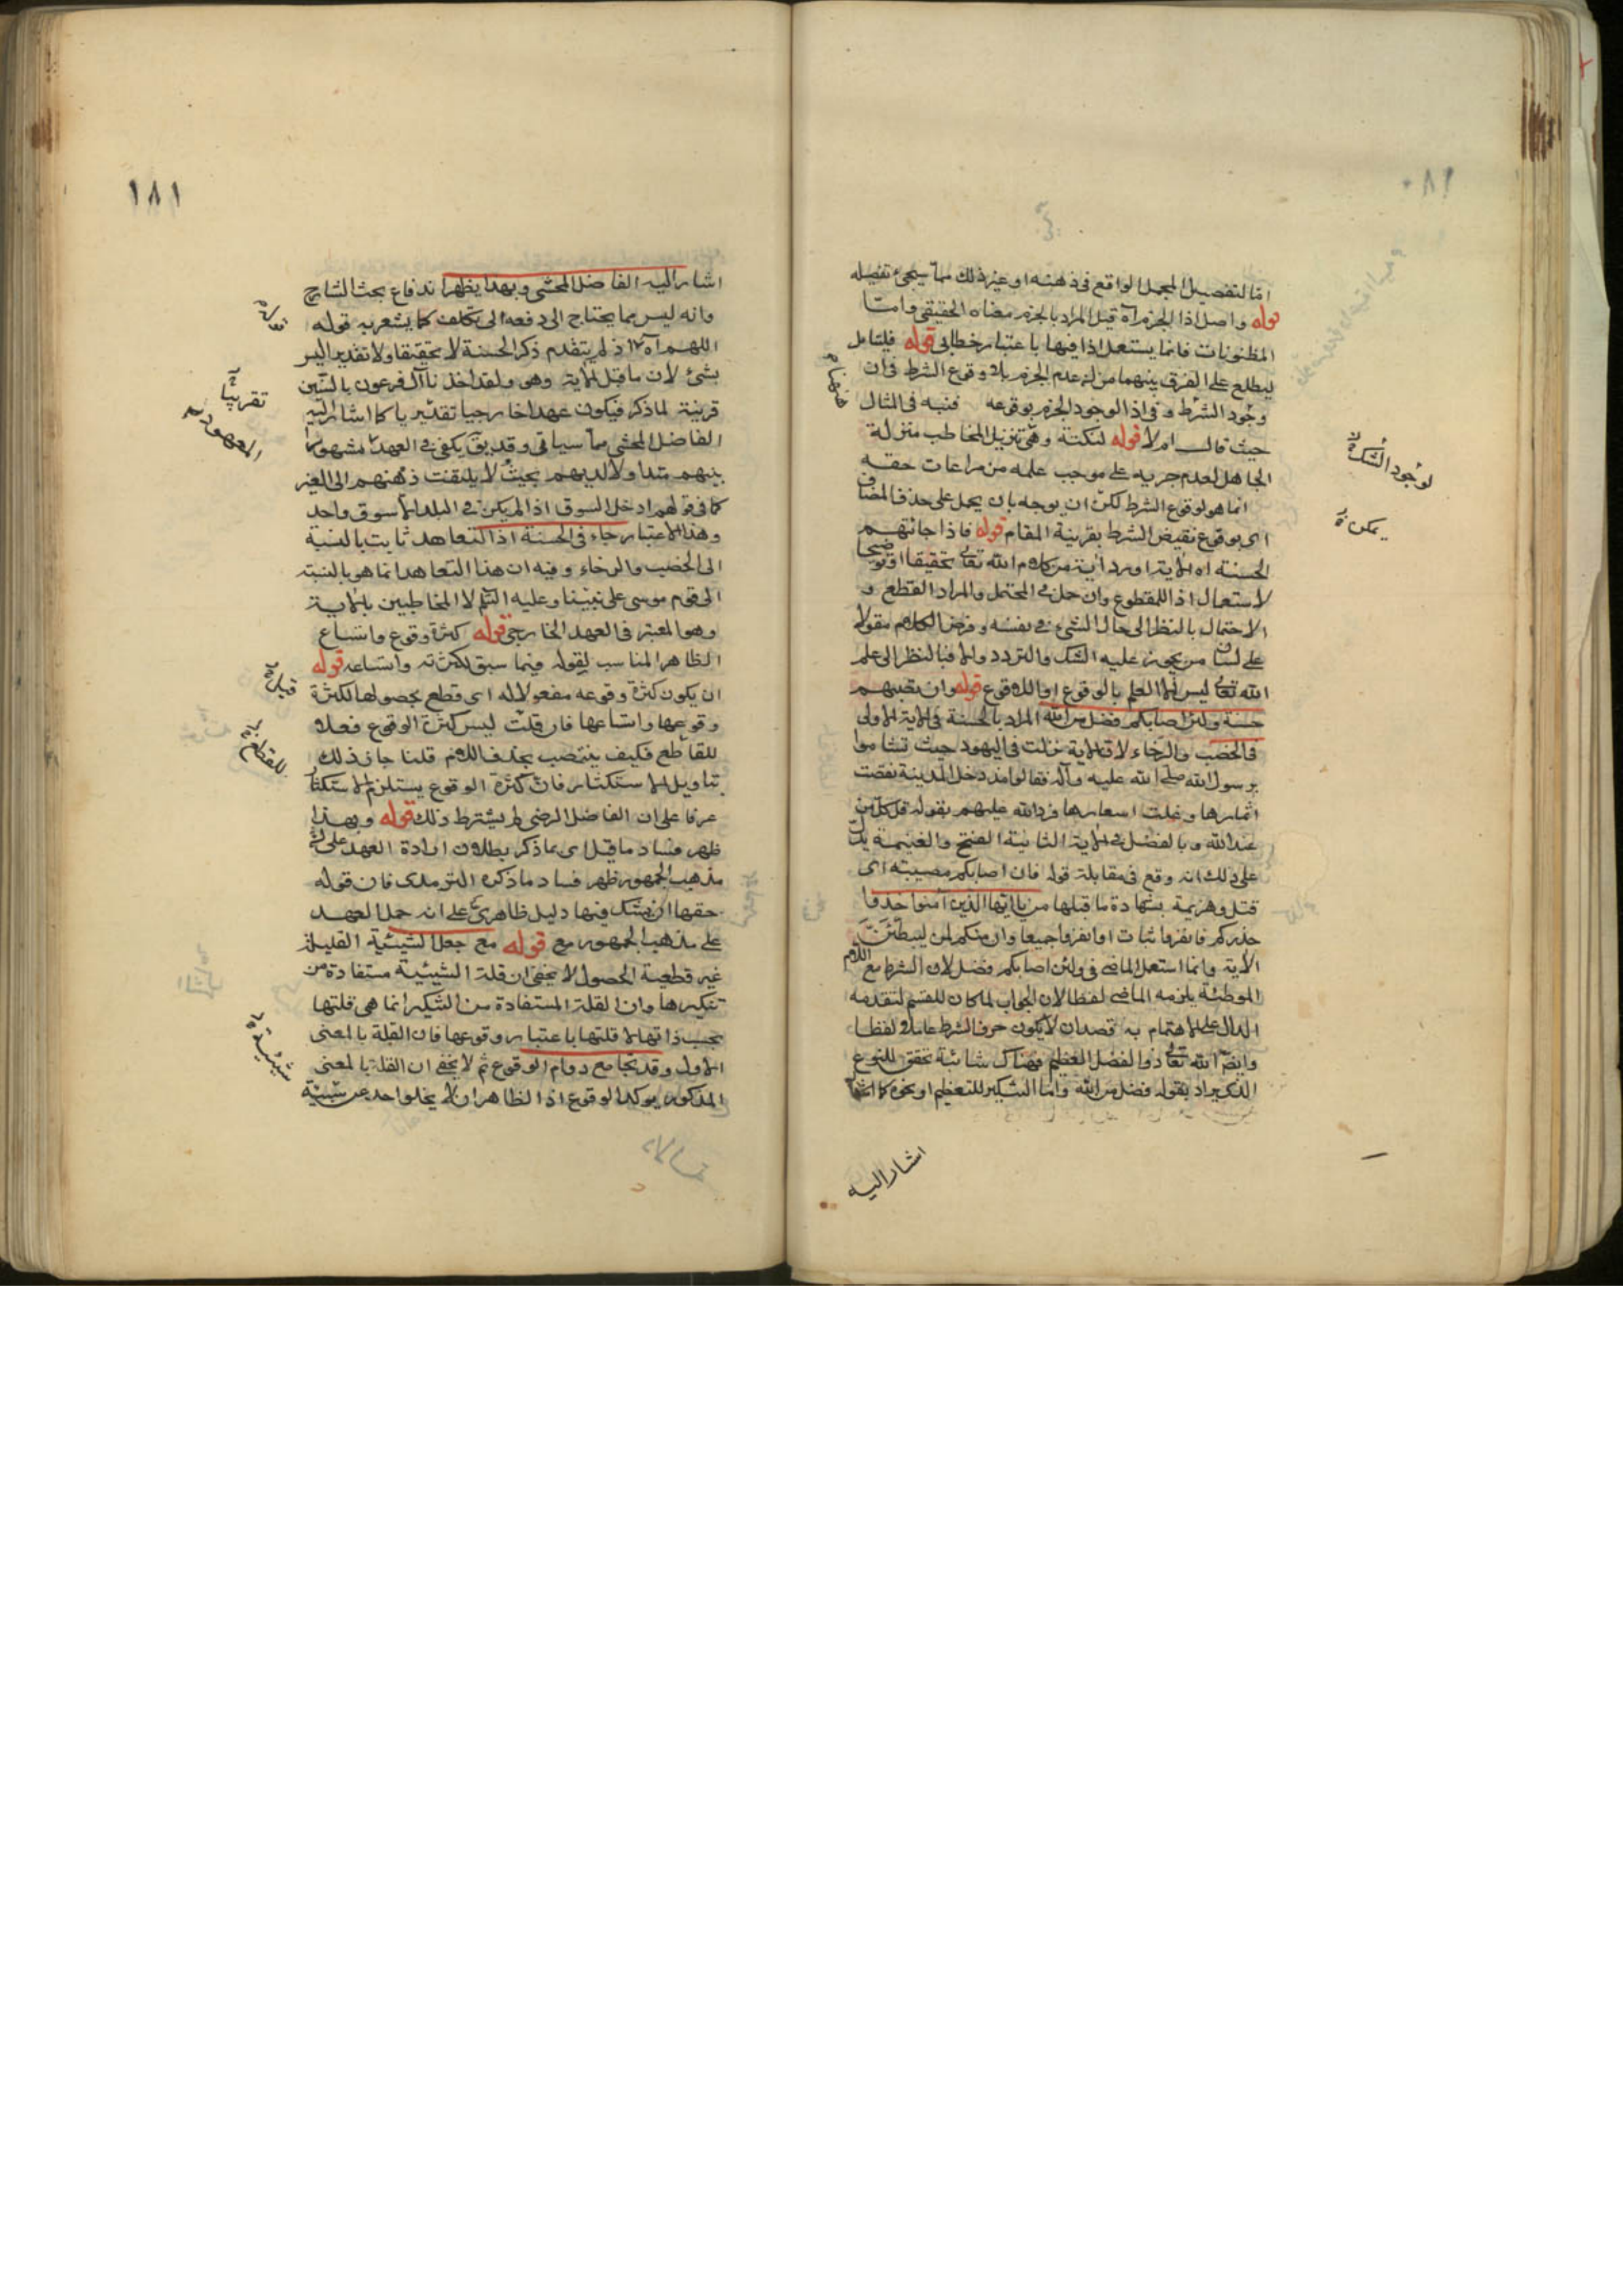 اما لتفصيل المجمل الواقع فى ذهنه او غير ذلك مما سيجئ تفصيله
قوله واصل اذا الجزم آه قيل المراد بالجزم معناه الحقيقى وامّا
المظنونات فانما يستعمل اذا فيها باعتبار خطابى قوله فليتامل
ليطلع على الفرق بينهما من ان عدم الجزم بلا وقوع الشرط فى ان
وجود الشرط وفى اذا لوجود الجزم بوقوعه فنبه فى المثال
حيث قال ام لا قوله لنكتة وهى تنزيل المخاطب منزلة
الجاهل لعدم جريه على موجب علمه من مراعات حقه
انما هو لوقوع الشرط لكن ان يوجه بان يحمل على حذف المضاف
اى بوقوع نقيض الشرط بقرينة المقام قوله فاذا جائتهم
الحسنة اه الاية اورد آية من كلام الله تعالى تحقيقا او توضيحا
لاستعمال اذا للمقطوع وان حل فى المحتمل والمراد القطع و
الاحتمال بالنظر الى حال الشئ فى نفسه وفرض الكلام مقولا
على لسان من يجوز عليه الشك والتردد والا فبالنظر الى علم
الله تعالى ليس الا العلم بالوقوع او اللاوقوع قوله وان تصبهم
حسنة ولئن اصابكم فضل من الله المراد بالحسنة فى الاية الاولى
فالخصب والرخاء لان الاية نزلت فى اليهود حيث تشاموا
برسول الله صلى الله عليه وآله فقالوا منذ دخل المدينة نقصت
اثمارها وغلت اسعارها فرد الله عليهم بقوله قل كل من
عند الله وبالفضل فى الاية الثانية الفتح والغنيمة يدل
على ذلك انه وقع فى مقابلة قوله فان اصابكم مصيبة اى
قتل وهزيمة بشهادة ما قبلها من يا ايها الذين آمنوا خذوا
حذركم فانفروا ثبات او انفروا جميعا وان منكم لمن ليبطئنّ
الآية وانما استعمل الماضى فى ولئن اصابكم فضل لان الشرط مع اللام
الموطئة يلزمه الماضى لفظا لان الجواب لما كان للقسم لتقدمه
الدال على الاهتمام به قصد ان لا يكون حرف الشرط عاملا لفظا
وايضا الله تعالى ذو الفضل العظيم فهناك شائبة تحقق للنوع
الذى يراد بقوله فضل من الله واما التنكير للتعظيم او نحوه كما
لوجود الشك
يمكن
اشار اليه
١٨١
اشار اليه الفاضل المحشى وبهذا يظهر اندفاع بحث الشارح
وانه ليس مما يحتاج الى دفعه الى تكلف كما يشعر به قوله
اللهم آه اذ لم يتقدم ذكر الحسنة لا تحقيقا ولا تقديرا ليس
بشئ لان ما قبل الاية وهى ولقد اخذنا آل فرعون بالسنين
قرينة لما ذكر فيكون عهدا خارجيا تقديريا كما اشار اليه
الفاضل المحشى مما سياتى وقد يق يكفى فى العهد مشهوريّا
بينهم متداولا لديهم بحيث لا يلتفت ذهنهم الى الغير
كما فى قولهم ادخل السوق اذا لم يكن فى البلد الا سوق واحد
وهذا الاعتبار جاء فى الحسنة اذ التعاهد ثابت بالنسبة
الى الخصب والرخاء وفيه ان هذا التعاهد انما هو بالنسبة
الى قوم موسى على نبينا وعليه السلام لا المخاطبين بالاية
وهو المعتبر فى العهد الخارجى قوله كثرة وقوع واتساع
الظاهر المناسب لقوله فيما سبق لكثرته واتساعه قوله
ان يكون كثرة وقوعه مفعولا له اى قطع بحصولها لكثرة
وقوعها واتساعها فان قلت ليس كثرة الوقوع فعلا
للقاطع فكيف ينتصب بحذف اللام قلنا جاز ذلك
بتاويل الاستكثار فان كثرة الوقوع يستلزم الاستكثار
عرفا على ان الفاضل الرضى لم يشترط ذلك قوله وبهذا
ظهر فساد ما قيل اى بما ذكر بطلان ارادة العهد على
مذهب الجمهور ظهر فساد ما ذكره الترمدى فان قوله
حقها ان يشك فيها دليل ظاهرى على انه حمل العهد
على مذهب الجمهور مع قوله مع جعل الشيئية القليلة
غير قطعية الحصول لا يخفى ان قلة الشيئية مستفادة من
تنكيرها وان القلة المستفادة من التنكير انما هى قلتها
بحسب ذاتها لا قلتها باعتبار وقوعها فان القلة بالمعنى
الاول وقد تجامع دوام الوقوع ثم لا يخفى ان القلة بالمعنى
المذكور يوكد الوقوع اذ الظاهر ان لا يخلو احد عن شيئية
تقريبيّا
المعهود
للقطع